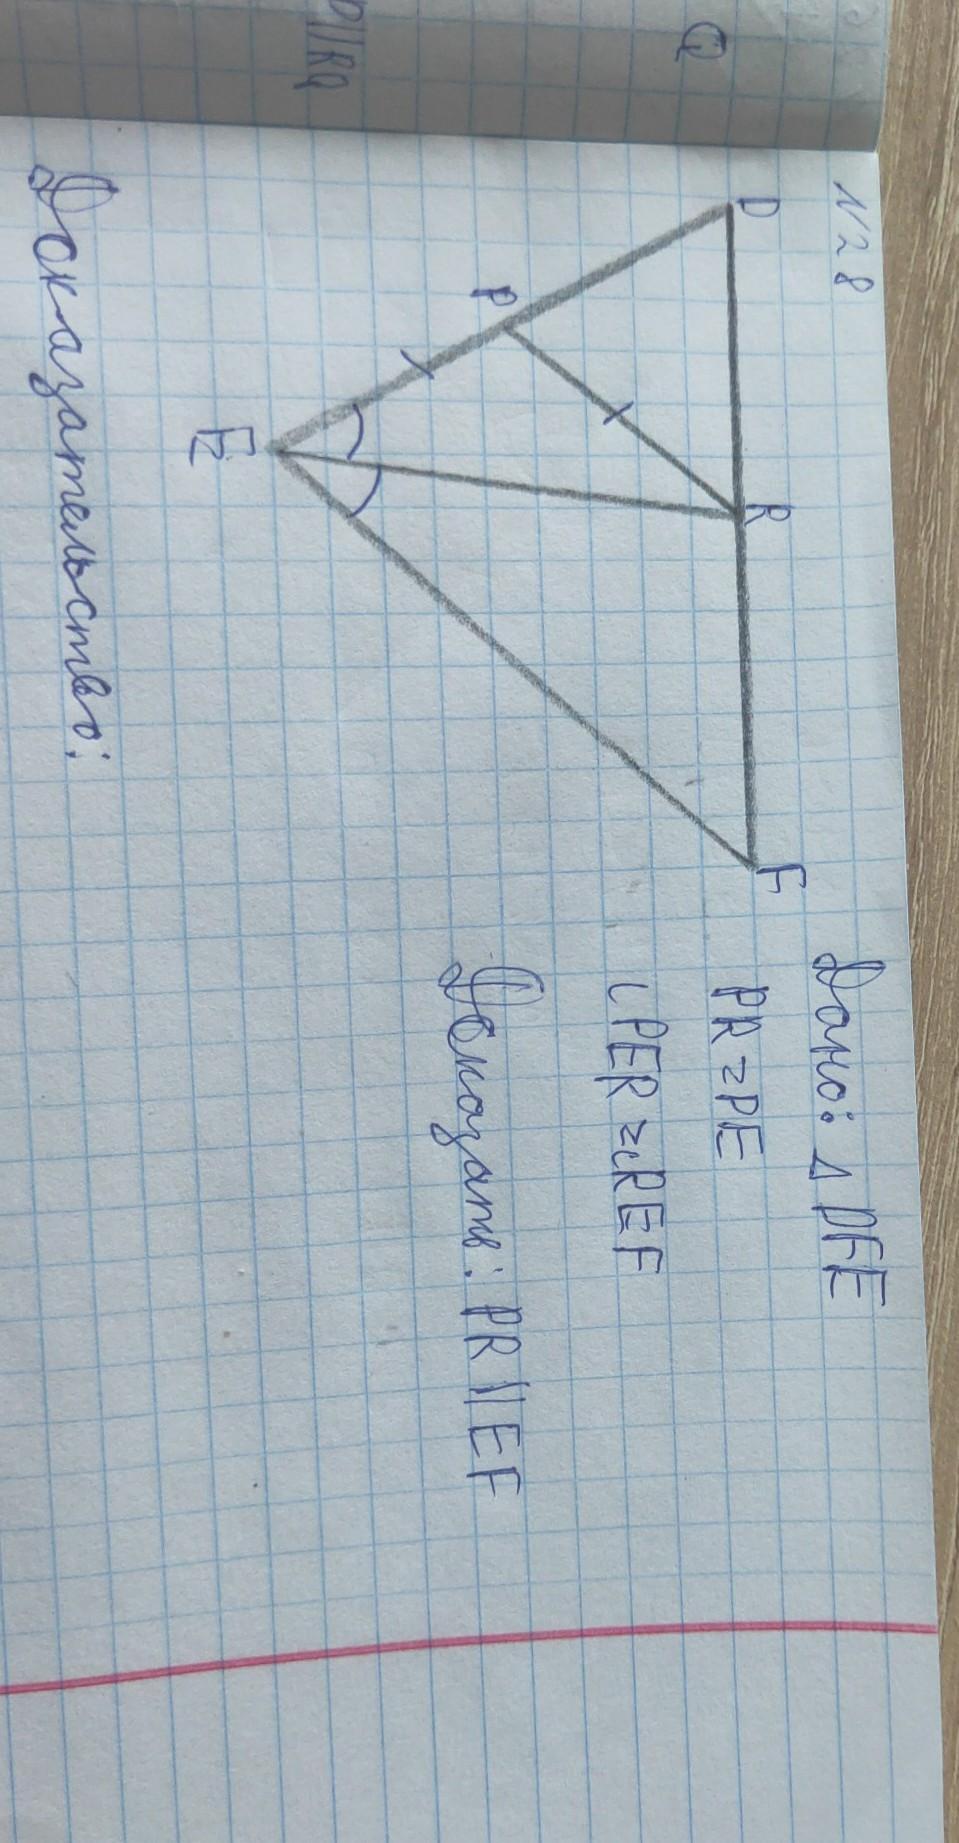 Q
P||RQ
N28
D
R
F
P
E
Дано: Δ DFE
PR=PE
∠PER=∠REF
Доказать: PR || EF
Доказательство: